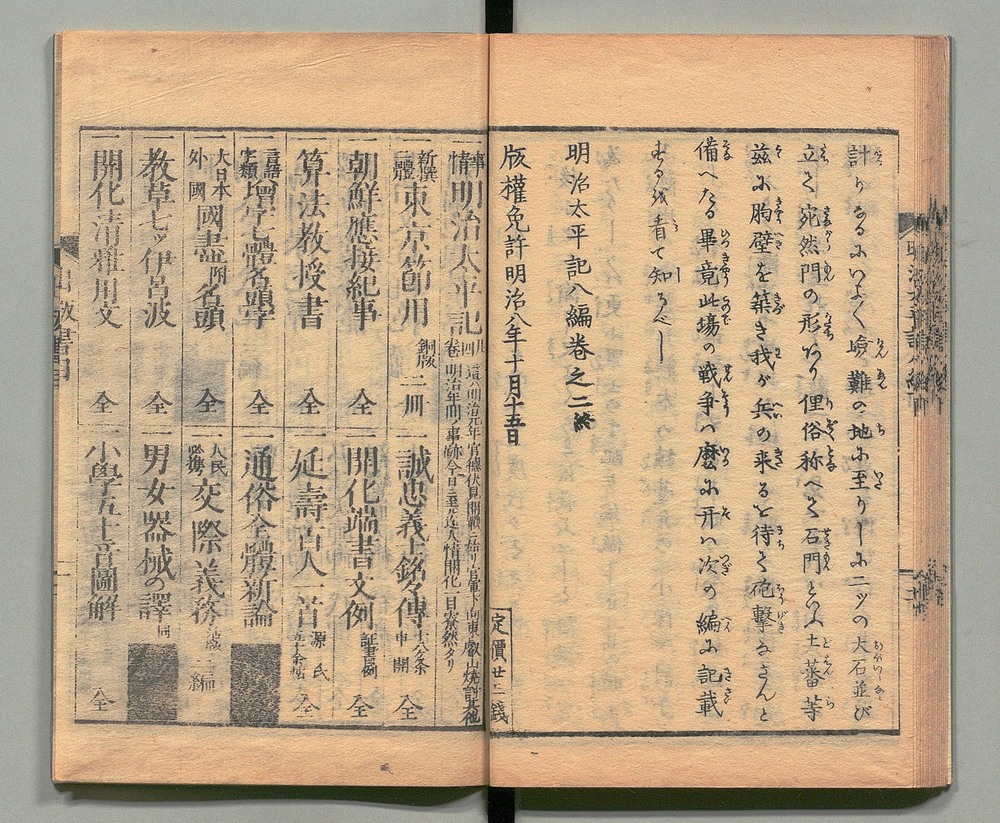 計りなるにいよ〳〵嶮難の地に至りしに二ッの大石並び
立て宛然門の形あり俚俗称へて石門といふ土蕃等
茲に胸壁を築き我が兵の来るを待て砲撃なさんと
備へたる畢竟此場の戦争ハ暦に开ハ次の編に記載
するを看て知るべし
明治太平記八編巻之二終
版權免許明治八年十月十五日
定價廿二錢
事情明治太平記
明治年間ノ事跡今日ニ至ル迄人情開化一目瞭然タリ
新撰東京節用 銅版 二冊
誠忠義士銘々傳
朝鮮應接紀事 全
開化端書文例 証書文例 全
算法教授書 全
延壽百人一首 源氏五十余帖 全
言語字類增字七體名頭字 全
通俗全體新論
大日本外國國盡附名頭 全
人民必携交際義務 二編
教草七ッ伊呂波 全
男女器械の譯 同
開化清雅用文 全
小學五十音圖解 全